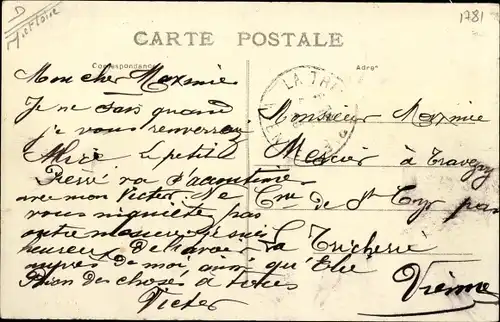 D
M et Loire
1781
CARTE POSTALE
Correspondance
Adresse
LA TRI
Mon cher Maxmie
Je ne sais quand
je vous renverrai
le petit
Pierre va
avec mon Victor. Ne
vous niquiéte pas
votre
heureux
auprès de moi, ainsi qu'Elie
Bien des choses à tous
Victor
Monsieur Maxmie
Mercier à Travegny
Cne de St Cyr par
La Tricherie
Vienne